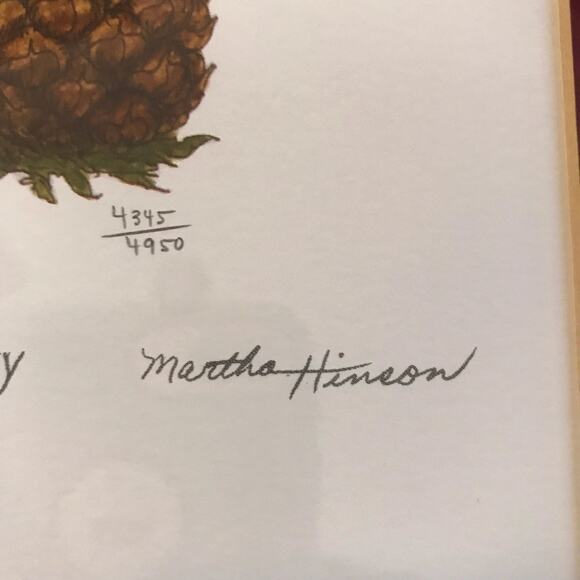 4345
4950
y
Martha Hinson